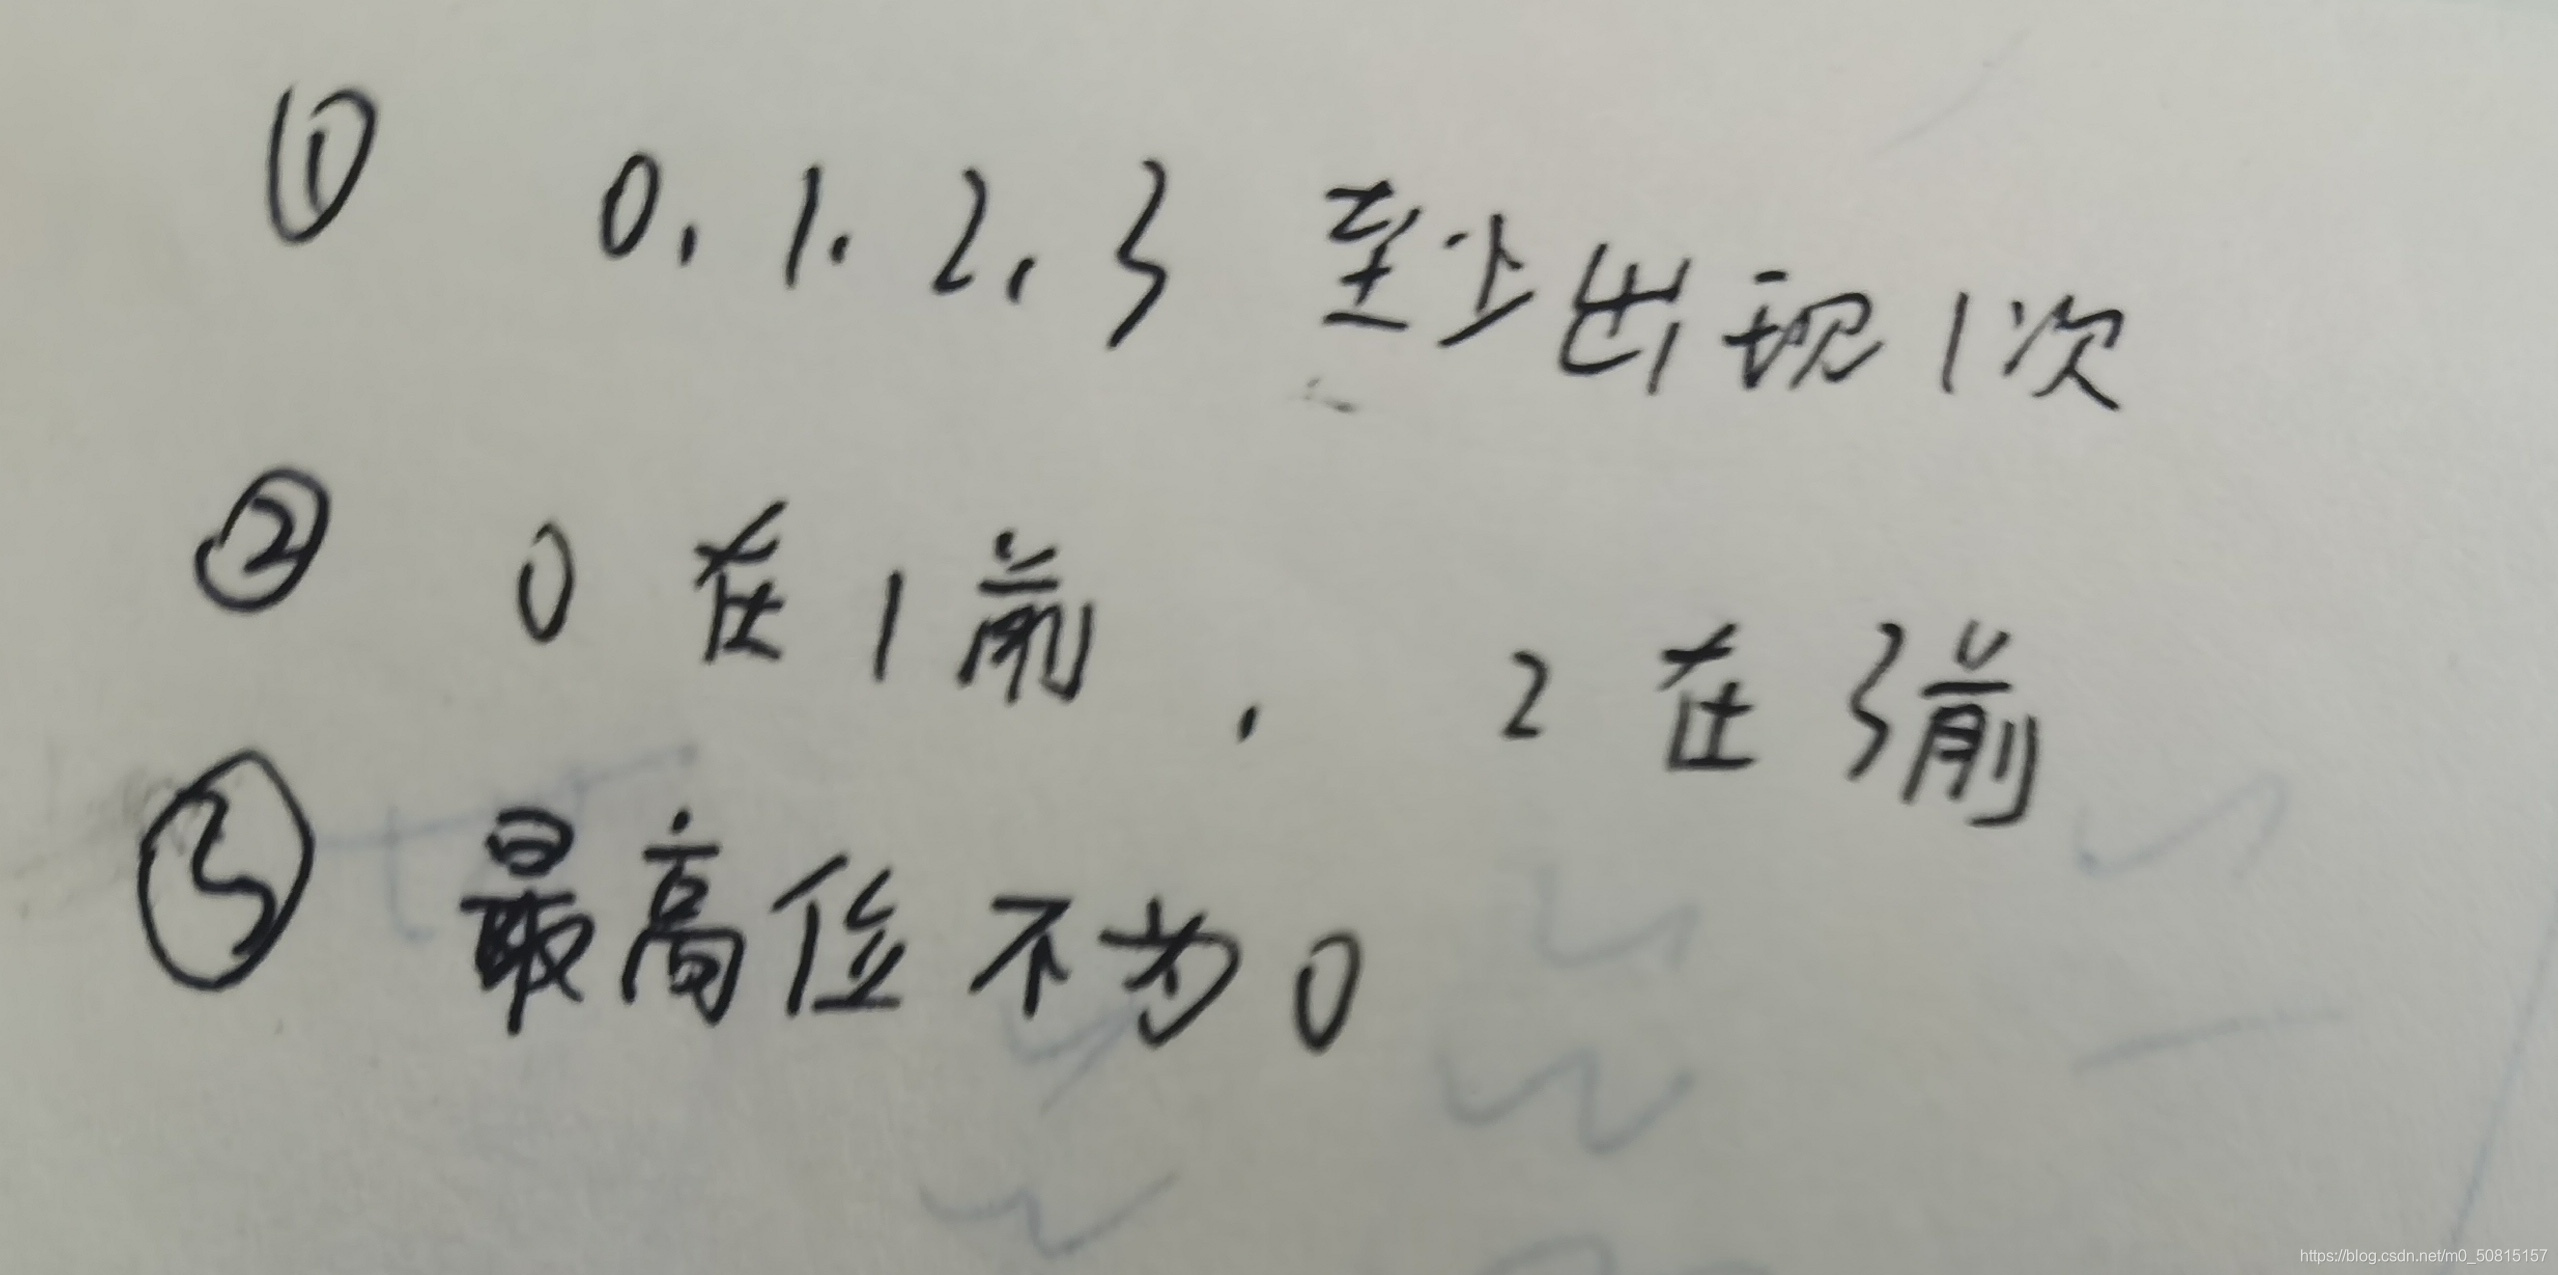 ① 0,1,2,3 至少出现1次
② 0在1前,2在3前
③ 最高位不为0
https://blog.csdn.net/m0_50815157